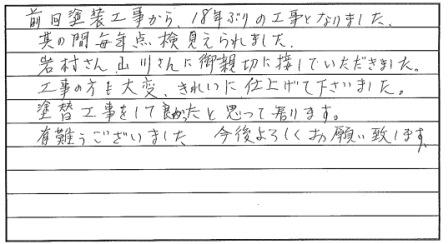 前回塗装工事から、18年ぶりの工事となりました。
其の間毎年点検見えられました。
岩村さん、山川さんに御親切に接していただきました。
工事の方も大変、きれいに仕上げて下さいました。
塗替工事をして良かったと思って居ります。
有難うございました 今後よろしくお願い致します。